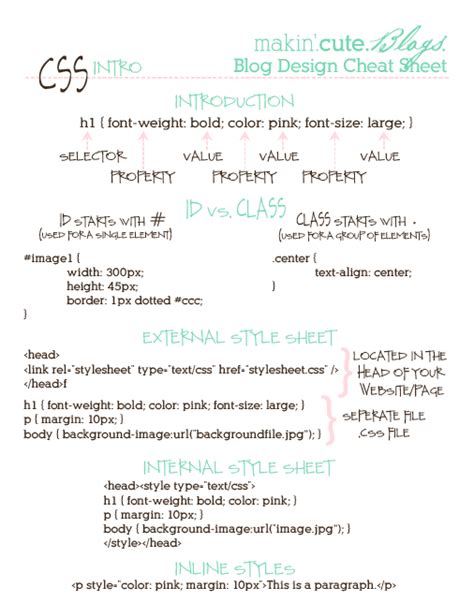 makin'cute.Blogs.
CSS INTRO
Blog Design Cheat Sheet
INTRODUCTION
h1 { font-weight: bold; color: pink; font-size: large; }
SELECTOR VALUE VALUE VALUE
PROPERTY PROPERTY PROPERTY
ID vs. CLASS
ID STARTS WITH #
(USED FOR A SINGLE ELEMENT)
#image1 {
width: 300px;
height: 45px;
border: 1px dotted #ccc;
}
CLASS STARTS WITH .
(USED FOR A GROUP OF ELEMENTS)
.center {
text-align: center;
}
EXTERNAL STYLE SHEET
<head>
<link rel="stylesheet" type="text/css" href="stylesheet.css" />
</head>f
LOCATED IN THE
HEAD OF YOUR
WEBSITE/PAGE
h1 { font-weight: bold; color: pink; font-size: large; }
p { margin: 10px; }
body { background-image:url("backgroundfile.jpg"); }
SEPERATE FILE
.CSS FILE
INTERNAL STYLE SHEET
<head><style type="text/css">
h1 { font-weight: bold; color: pink; }
p { margin: 10px; }
body { background-image:url("image.jpg"); }
</style></head>
INLINE STYLES
<p style="color: pink; margin: 10px">This is a paragraph.</p>